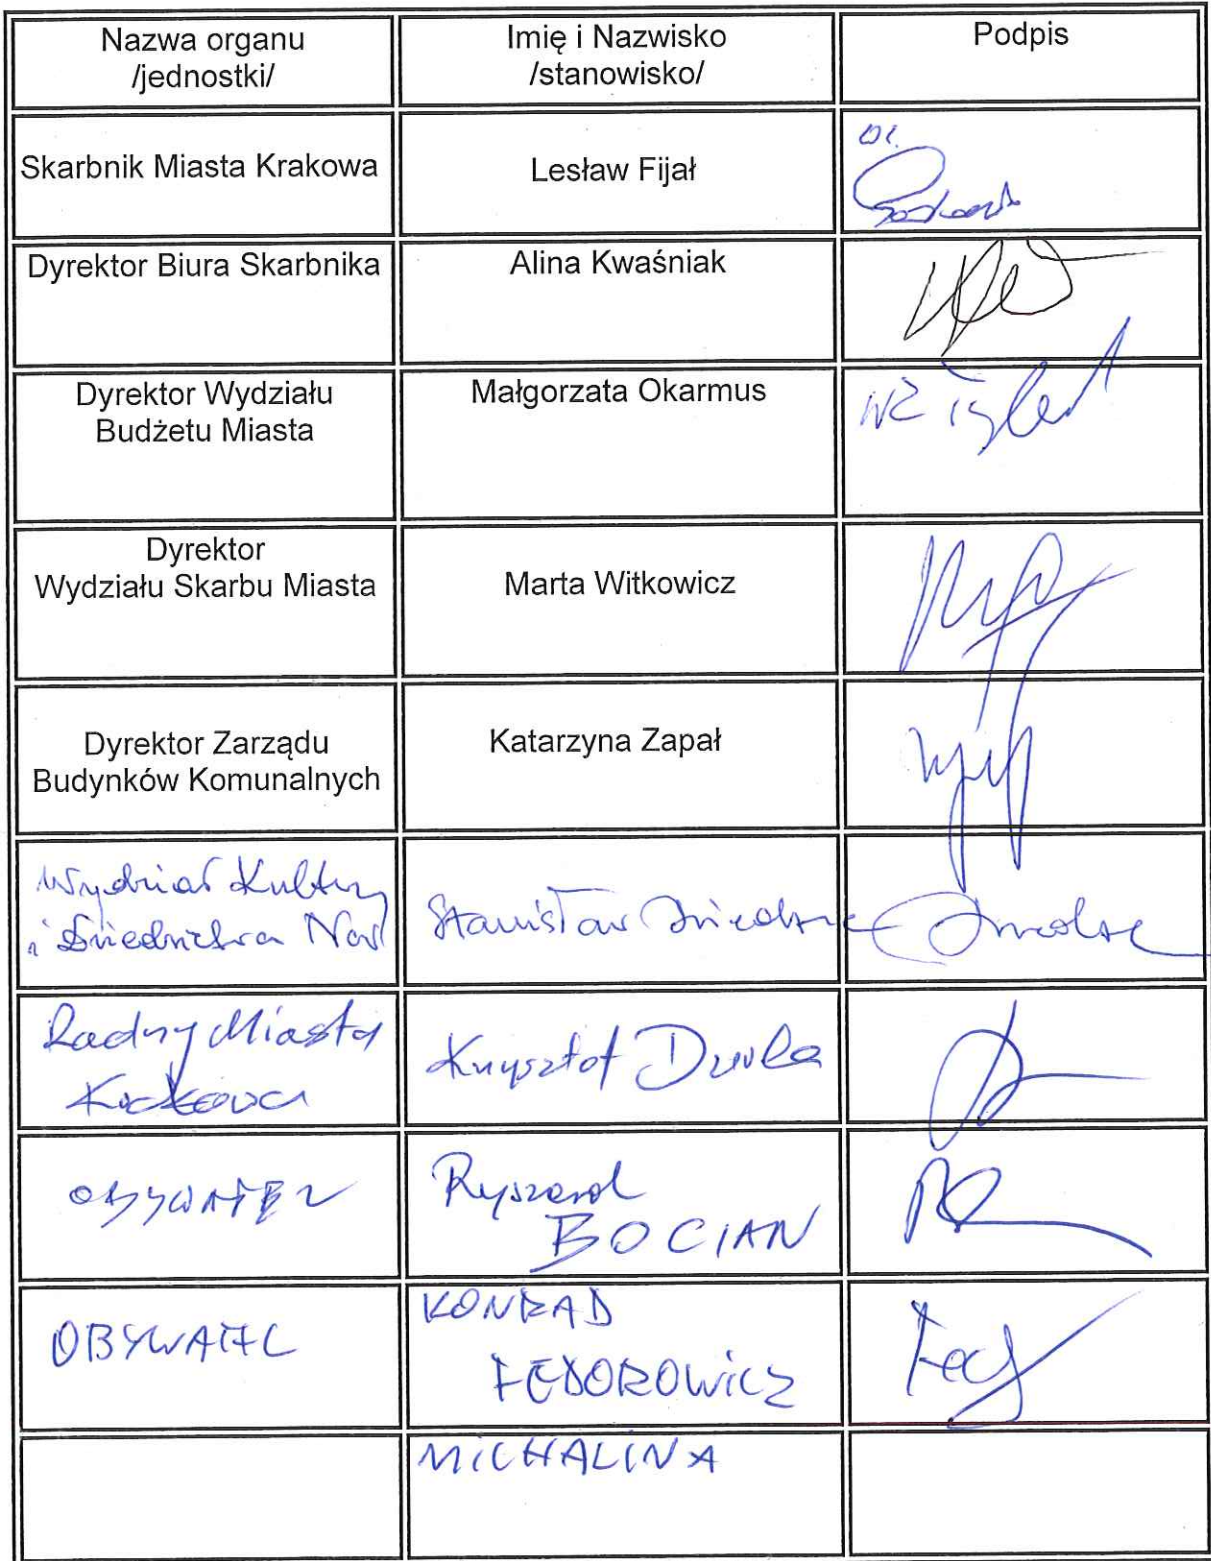 Nazwa organu
/jednostki/
Imię i Nazwisko
/stanowisko/
Podpis
Skarbnik Miasta Krakowa
Lesław Fijał
Dyrektor Biura Skarbnika
Alina Kwaśniak
Dyrektor Wydziału
Budżetu Miasta
Małgorzata Okarmus
WZ
Dyrektor
Wydziału Skarbu Miasta
Marta Witkowicz
Dyrektor Zarządu
Budynków Komunalnych
Katarzyna Zapał
Wydział Kultury
i Dziedzictwa Nar
Stanisław Dziedzic
Radny Miasta
Krakowa
Krzysztof Durek
OBYWATEL
Ryszard
BOCIAN
OBYWATEL
KONRAD
FEDOROWICZ
MICHALINA